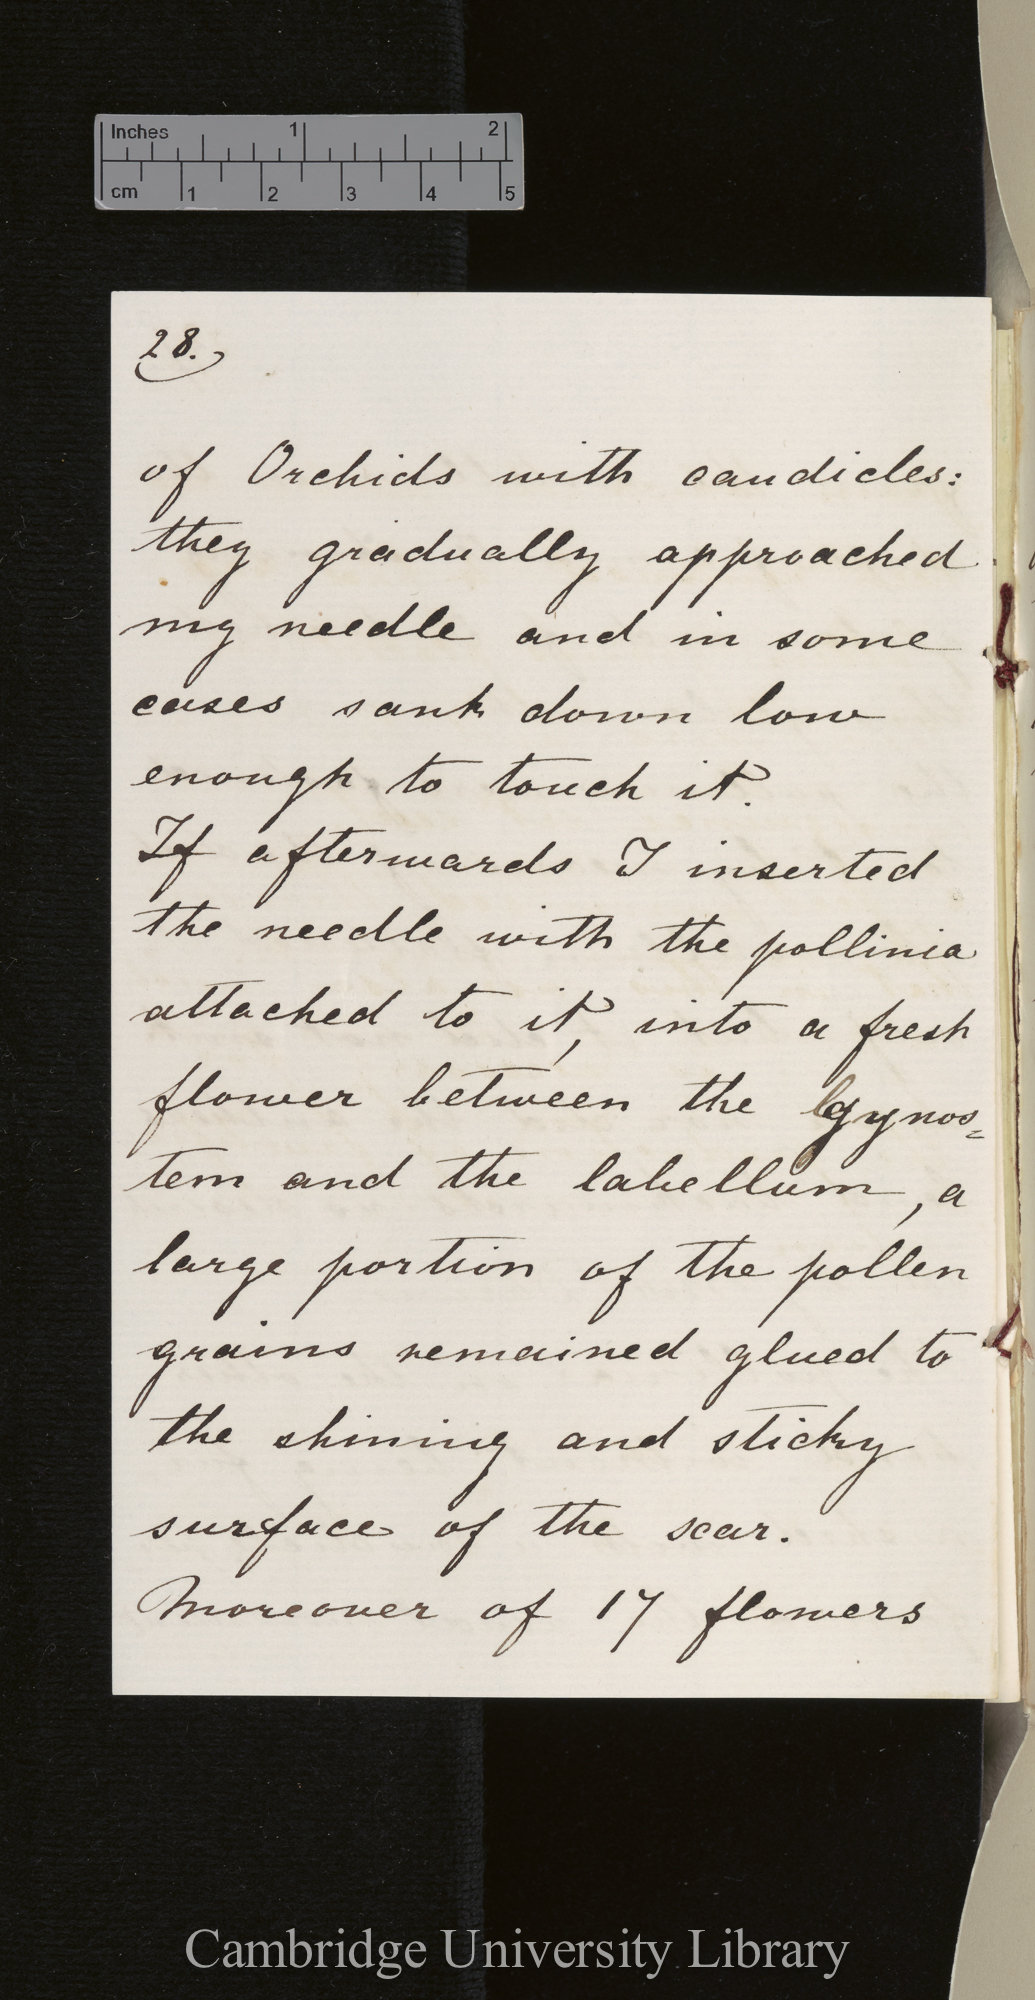 Inches 1 2
cm 1 2 3 4 5
28.
of Orchids with caudicles:
they gradually approached
my needle and in some
cases sank down low
enough to touch it.
If afterwards I inserted
the needle with the pollinia
attached to it, into a fresh
flower between the gynos=
tem and the labellum, a
large portion of the pollen
grains remained glued to
the shining and sticky
surface of the scar.
Moreover of 17 flowers
Cambridge University Library